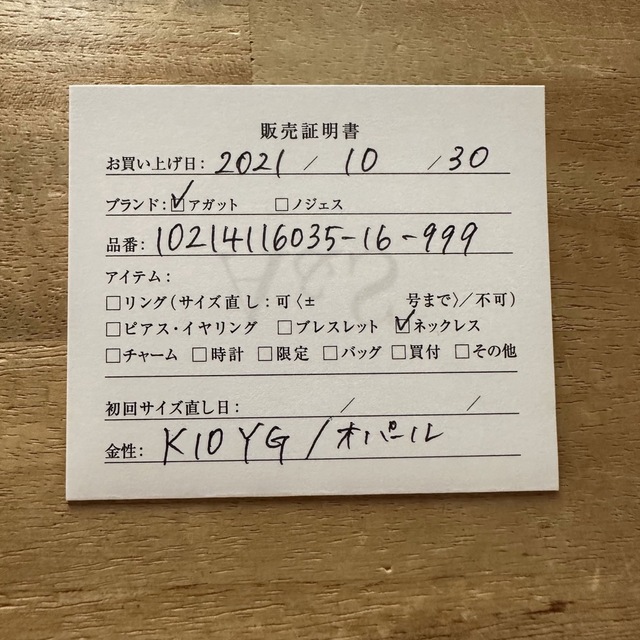 販売証明書
お買い上げ日: 2021 / 10 / 30
ブランド: ☑アガット □ノジェス
品番: 10214116035-16-999
アイテム:
□リング(サイズ直し: 可〈± 号まで〉/不可)
□ピアス・イヤリング □ブレスレット ☑ネックレス
□チャーム □時計 □限定 □バッグ □買付 □その他
初回サイズ直し日: / /
金性: K10YG/オパール